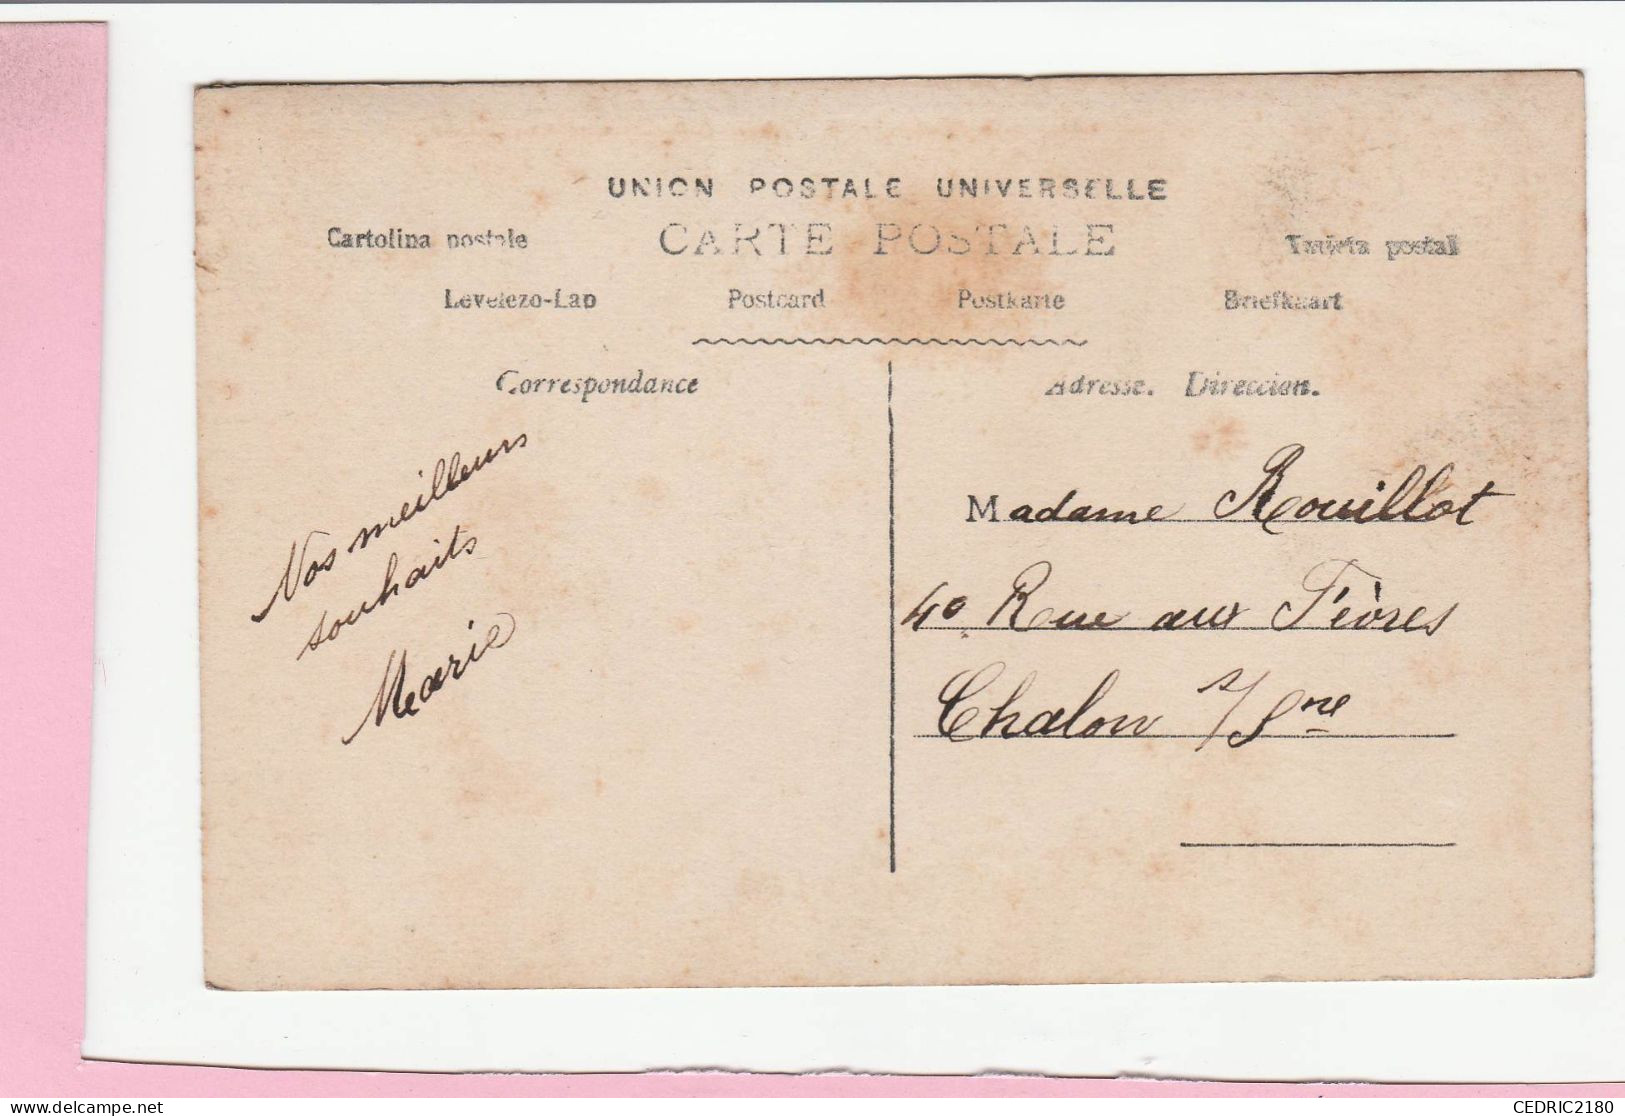 UNION POSTALE UNIVERSELLE
Cartolina postale CARTE POSTALE Tarjeta postal
Levelezo-Lap Postcard Postkarte Briefkaart
Correspondance Adresse. Direccion.
Nos meilleurs
souhaits
Marie
Madame Rouillot
40 Rue aux Fèvres
Chalon s/Sne
CEDRIC2180